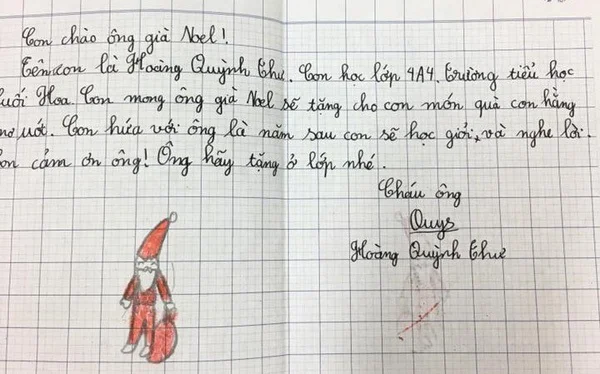 Con chào ông già Noel!
Tên con là Hoàng Quỳnh Thư. Con học lớp 4A4. Trường tiểu học
Hoa. Con mong ông già Noel sẽ tặng cho con món quà con hằng
ước. Con hứa với ông là năm sau con sẽ học giỏi, và nghe lời.
cảm ơn ông! Ông hãy tặng ở lớp nhé.
Cháu ông
Quys
Hoàng Quỳnh Thư